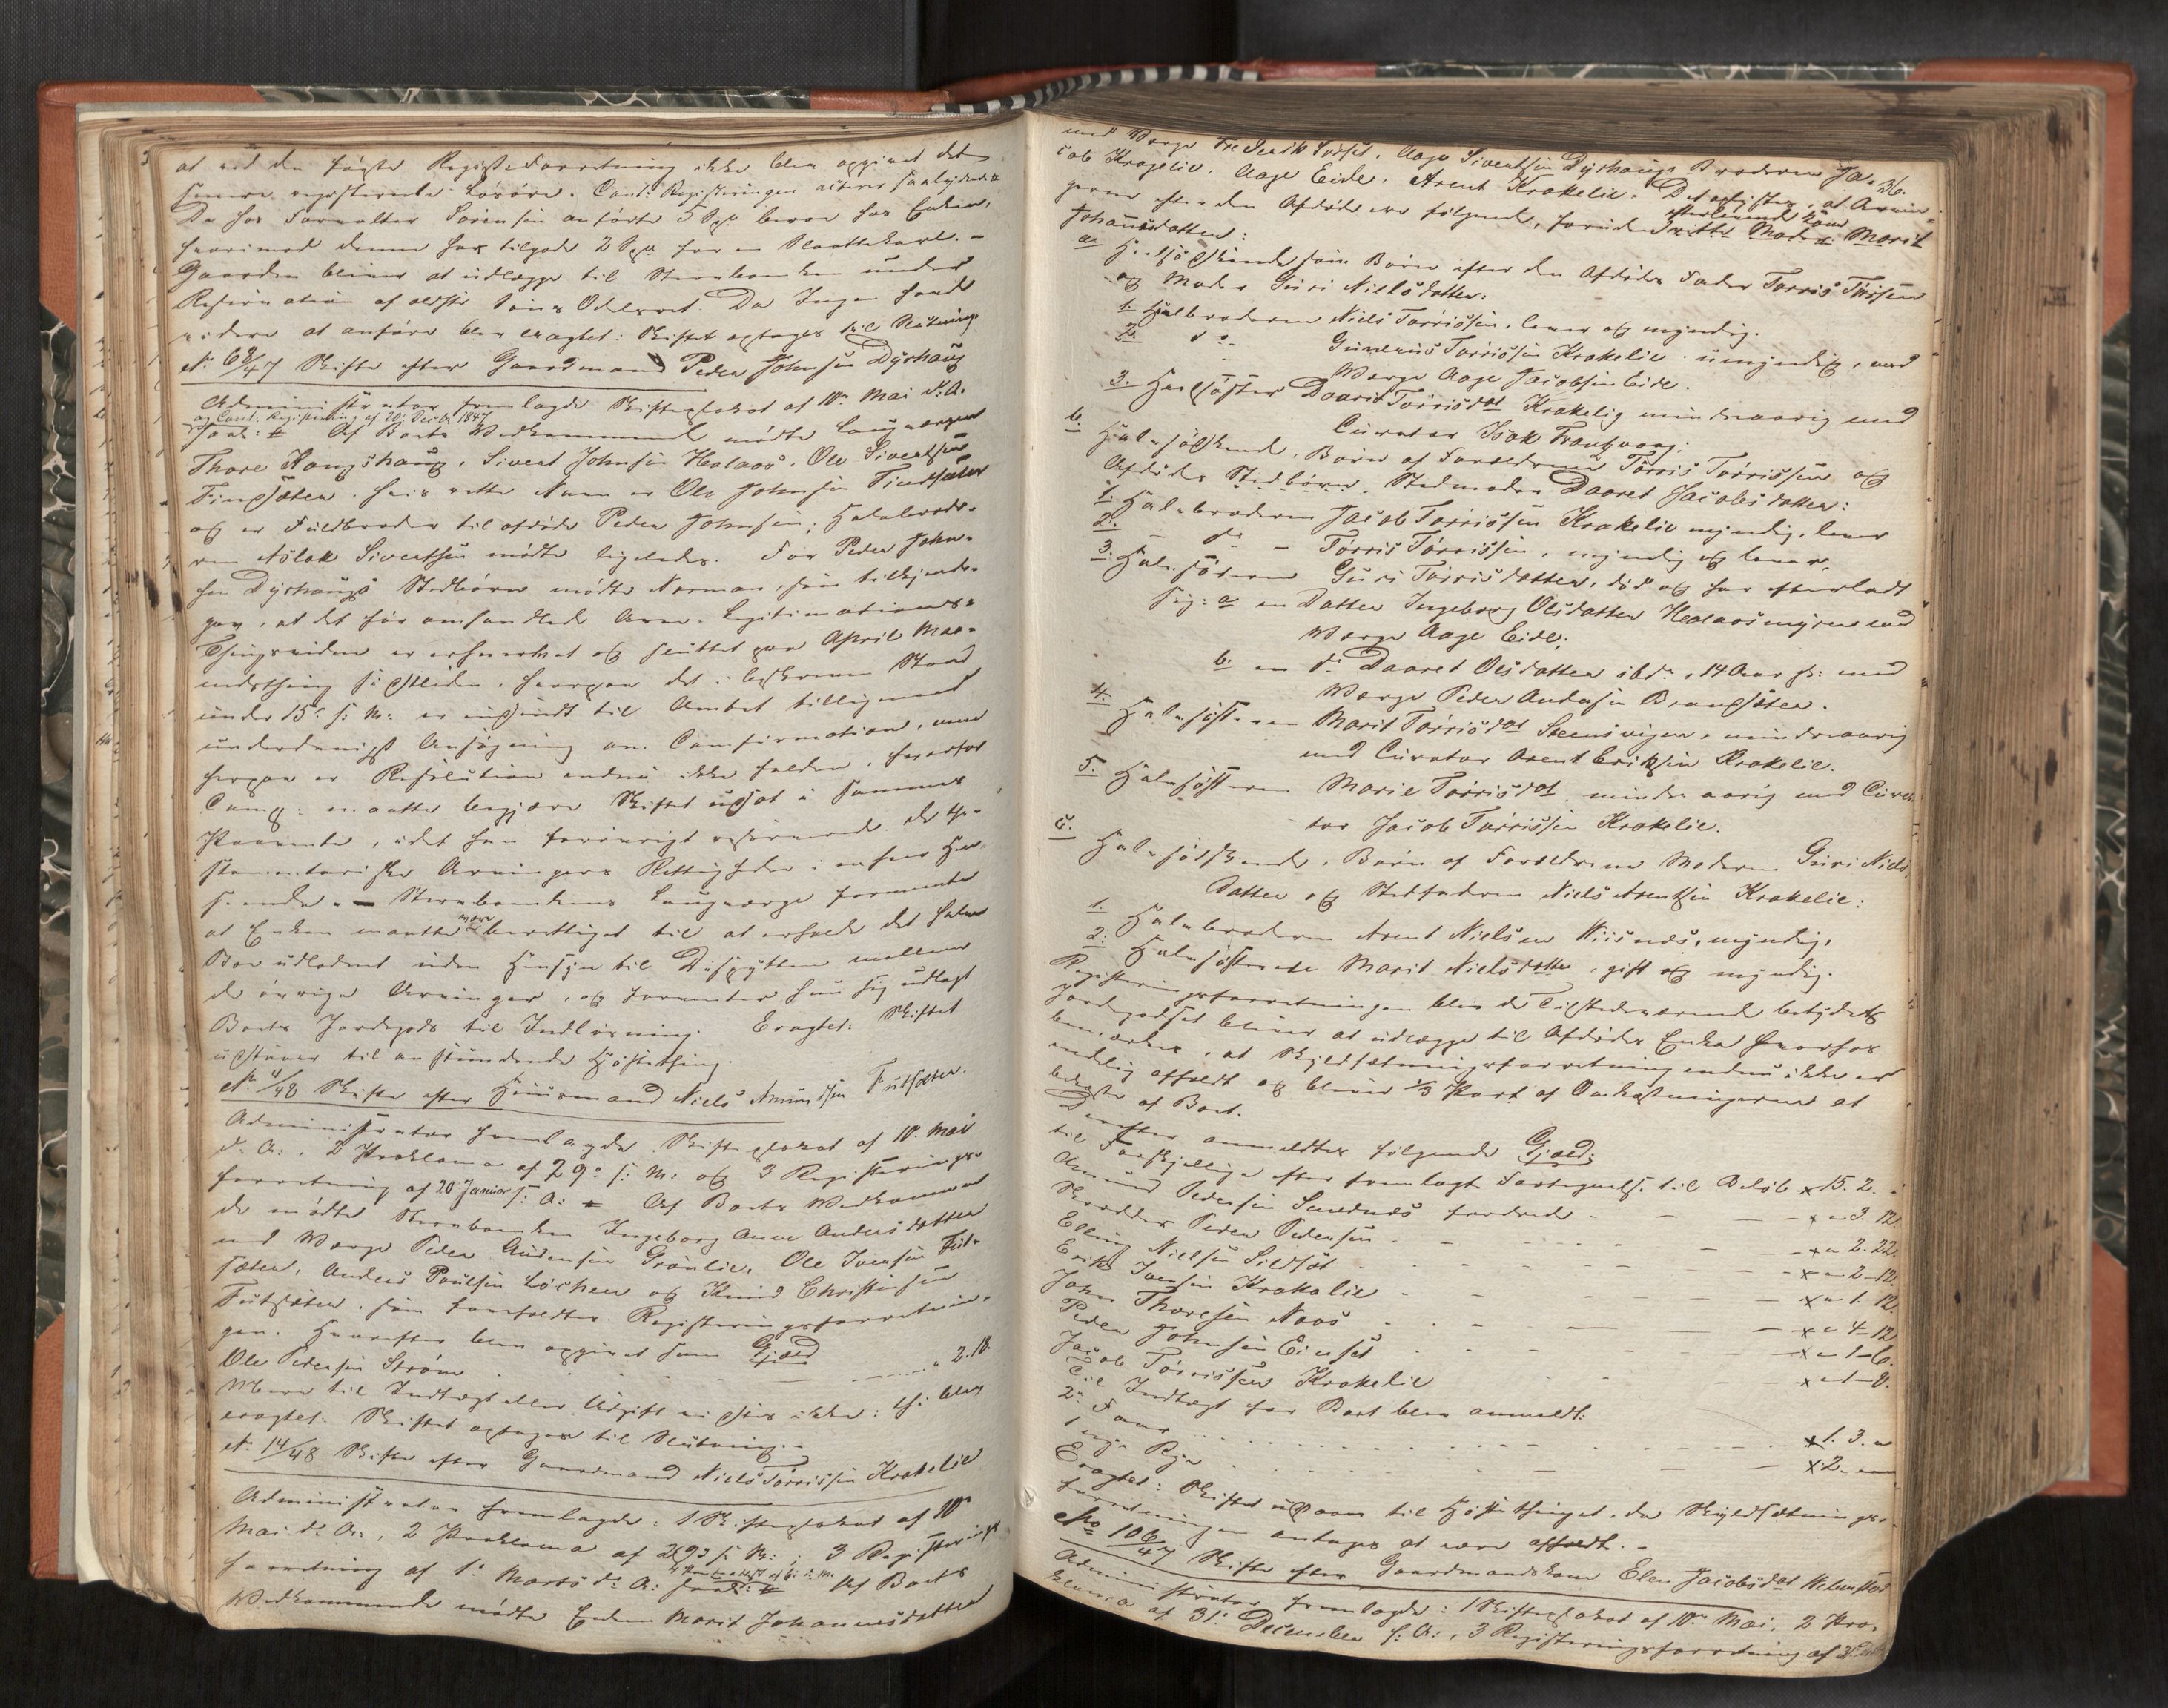 at ved den første Registreforretning ikke blev opgivet det
senere registrerede Løsøre. Cont: Registreringen acteres saalydende
De hos Forvalter Sørensen anførte 5 Spd beror hos Enken,
hvorimod denne har tilgode 2 Spd for en Slaattekarl. -
Gaarden bliver at udlægge til Sterboenken under
Reservation af ældste Søns Odelsret. Da Ingen havde
videre at anføre blev eragtet: Skiftet optages til Slutning
No 68/47 Skifte efter Gaardmand Peder Johnsen Dyrhaug
Administrator fremlagde Skifteplakat af 10de Mai d. A.
og Cont: Registrering af 20de Decbr 1847
saal: Af Boets Vedkommende mødte Laugværgen
Thore Kongshaug, Sivert Johnsen Halaas, Ole Sivertsen
Finsæter, hvis rette Navn er Ole Johnsen
og er Fuldbroder til afdøde Peder Johnsen; Halvbrode-
ren Aslak Sivertsen mødte ligeledes. For Peder John-
sen Dyrhaugs Stedbørn mødte Norman, som tilkjende-
gav, at det før omhandlede Arve-Legitimations-
Thingsvidne er erhvervet og sluttet paa April Maa-
nedsthing sidstleden, hvorpaa det i beskreven Stand
under 15de s: M: er indsendt til Ambtet tilligemed
underdanigst Ansøgning om Confirmation, men
herpaa er Resolution endnu ikke falden, hvorfor
Comp: maatte begjære Skiftet udsat i sammes
Paavente, idet han forøvrigt reserverede de te-
stamentariske Arvingers Rettigheder i enhver Hen-
seende. - Sterboenkens Laugværge formente
at Enken maatte være berettiget til at erholde det halve
Boe udloddet uden Hensyn til Disputten mellem
de øvrige Arvinger, og forventer hun sig udlagt
Boets Jordegods til Indløsning. Eragtet: Skiftet
udstaaer til anstundende Høstething.
No 4/48 Skifte efter Huusmand Niels Amundsen Futsæter.
Administrator fremlagde Skifteplakat af 10de Mai
d. A:, 2 Proklama af 29de s: M: og 3 Registrerings-
forretning af 20 Januar s: A: Af Boets Vedkommen
de mødte Sterboenken Ingeborg Anne Andersdatter
med Værge Peder Gudensen Grønlie, Ole Iversen Fut-
sæter, Anders Poulsen Løchen og Knud Christensen
Futsæter, som foreholdtes Registreringsforretnin-
gen. Hvorefter blev opgivet som Gjæld
Ole Pedersen Strøm - - - " 2. 18.
Mere til Indtægt eller Udgift vides ikke: thi blev
eragtet: Skiftet optages til Slutning. -
No 14/48 Skifte efter Gaardmand Niels Tørrissen Krakelie
Administrator fremlagde: 1 Skifteplakat af 10de
Mai d: A:, 2 Proklama af 29de s: M:; 3 Registrerings
forretning af 1de Marts d: A: Af Boets
Vedkommende mødte Enken Marit Johannesdatter
36.
med Værge Frederik , Aage Sivertsen Dyrhaug, Broderen Ja-
cob Kragelie, Aage Eide, Arent Krakelie. Det oplystes, at Arvin-
gerne efter den Afdøde ere følgende, foruden efterlevende Kone Marit
Johannesdatter:
a. Helsødskende som Børn efter den Afdødes Fader Tørris Tørrissen
og Moder Guri Nielsdatter:
1. Helbroderen Niels Tørrissen, lever og myndig.
2. do - Gunerius Tørrissen Krakelie umyndig, med
Værge Aage Jacobsen Eide.
3. Helsøster Daaret Tørrisdat Krakelie mindreaarig med
Curator Isak .
b. Halvsødskende, Børn af Forældrene Tørris Tørrissen og
Afdødes , Stedmoder Daaret Jacobsdatter:
1. Halvbroderen Jacob Tørrissen Krakelie myndig, lever
2. - do - Tørris Tørrissen, myndig og lever,
3. Halvsøsteren Guri Tørrisdatter, død og har efterladt
sig: a en Datter Ingeborg Olsdatter Halaasmyren med
Værge Aage Eide;
b. en do Daaret Olsdatter ibd:, 14 Aar gl: med
Værge Peder Andersen .
4. Halvsøsteren Marit Tørrisdat Steensvigen, mindreaarig
med Curator Arent Eriksen Krakelie.
5. Halvsøsteren Marie Tørrisdat mindreaarig med Cura
tor Jacob Tørrissen Krakelie.
c. Halvsødskende, Børn af Forældrene Moderen Guri Niels
datter og Stedfaderen Niels Arentsen Krakelie:
1. Halvbroderen Arent Nielsen Wiisnæs, myndig,
2. Halvsøsteren Marit Nielsdatter, gift og myndig.
Registreringsforretningen blev de Tilstedeværende betydet
Jordegodset bliver at udlægge til Afdødes Enke hvorhos
bemærkes, at Skyldsætningsforretning endnu ikke er
endelig afholdt og bliver 1/3 Part af Omkostningerne at
bekoste af Boet.
Derefter anmeldtes følgende Gjæld:
til Forskjellige efter fremlagt Fortegnelse til Beløb x 15. 2. "
Amund Pedersen fordrede - - - x " 3. 12.
Peder Pedersen - - - x " 2. 22.
Elling Nielsen - - - x " 2 - 12.
Erik Iversen Krakelie - - - x " 1. 12.
John Thoresen Naas - - - x " 4 - 12
Peder Johnsen - - - x " 1 - 6.
Jacob Tørrissen Krakelie - - - x " 1 - 8.
Til Indtægt for Boet blev anmeldt:
2de Faar - - - x 1. 3. "
1 Rye - - - x 2. "
Eragtet: Skiftet udstaaer til Høstethinget, da Skyldsætningsfor-
forretningen antages at være afholdt. -
No 106/47 Skifte efter Gaardmandskone Elen Jacobsdat
Administrator fremlagde: 1 Skifteplakat af 10de Mai, 2 Pro-
klama af 31de December f: A:, 3 Registreringsforretning af